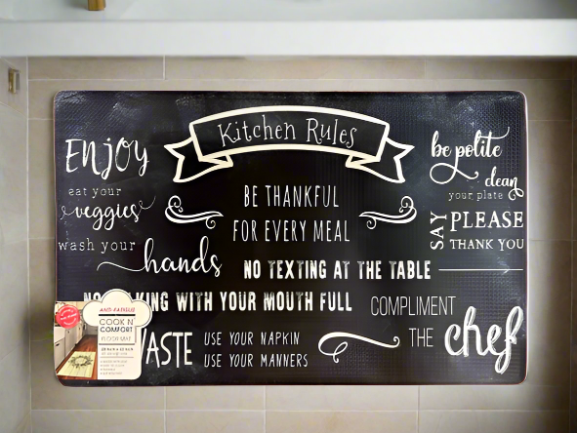 Kitchen Rules
ENJOY
eat your
veggies
wash your
hands
BE THANKFUL
FOR EVERY MEAL
be polite
clean
your plate
SAY PLEASE
THANK YOU
NO TEXTING AT THE TABLE
NO KING WITH YOUR MOUTH FULL
COMPLIMENT
THE chef
WASTE
USE YOUR NAPKIN
USE YOUR MANNERS
ANTI-FATIGUE
COOK N'
COMFORT
FLOOR MAT